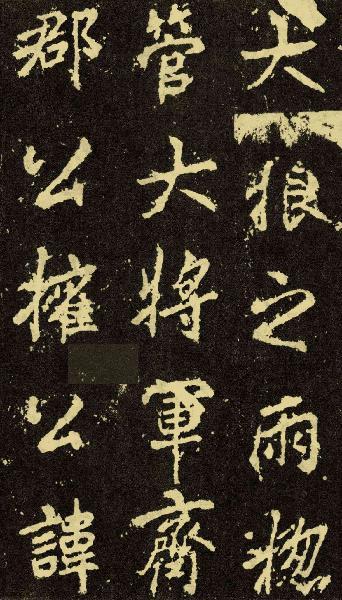 大狼之雨惣
管大將軍齊
郡公擁公諱